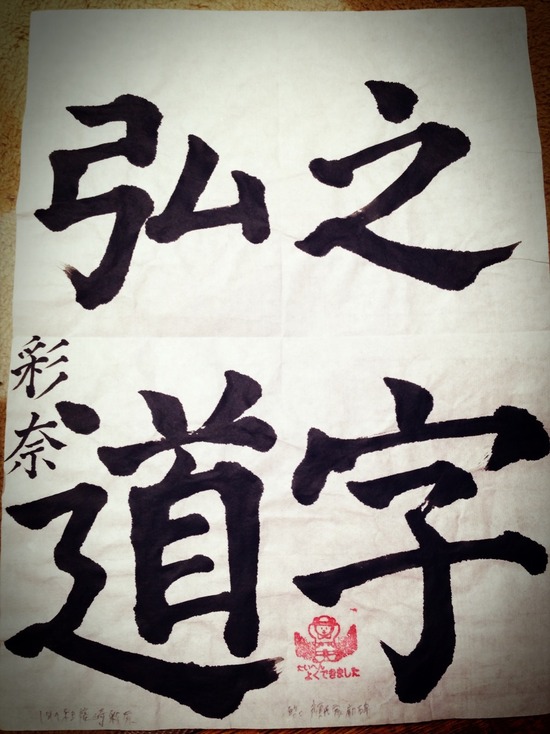 之字
弘道
彩奈
たいへん
よくできました